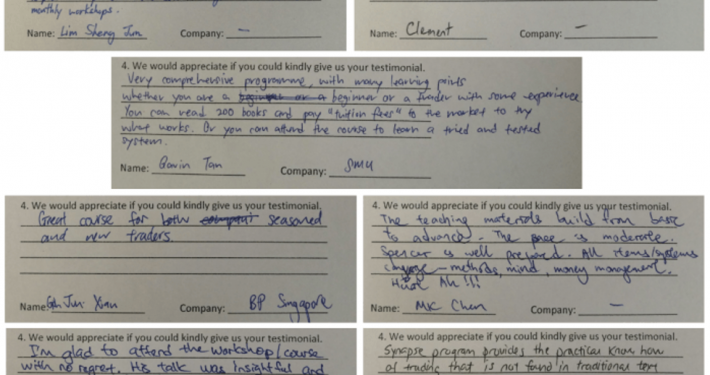 monthly workshops.
Name: Lim Sheng Jun Company: –
Name: Clement Company: –
4. We would appreciate if you could kindly give us your testimonial.
Very comprehensive programme, with many learning points
whether you are a beginner or a trader with some experience
You can read 200 books and pay "tuition fees" to the market to try
what works. Or you can attend the course to learn a tried and tested
system.
Name: Gavin Tan Company: SMU
4. We would appreciate if you could kindly give us your testimonial.
Great course for both seasoned
and new traders.
Name: Goh Jun Xian Company: BP Singapore
4. We would appreciate if you could kindly give us your testimonial.
The teaching materials build from basic
to advance. The pace is moderate.
Spencer is well prepared. All items/systems
methods, mind, money management.
Name: MK Chen Company: –
4. We would appreciate if you could kindly give us your testimonial.
I'm glad to attend the workshop/course
with no regret. His talk was insightful and
4. We would appreciate if you could kindly give us your testimonial.
Synapse program provides the practical know how
of trading that is not found in traditional